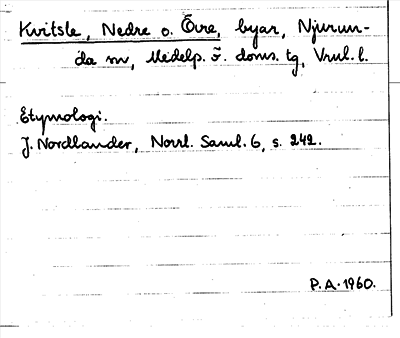 Kvitsle, Nedre o. Övre, byar, Njurun-
da sn, Medelp. ö. doms. tg, Vnrl. l.
Etymologi.
J. Nordlander, Norrl. Saml. 6, s. 242.
P.A. 1960.